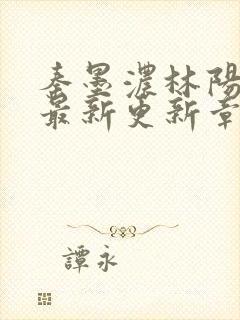 秦墨濃林陽
最新更新章
譚永